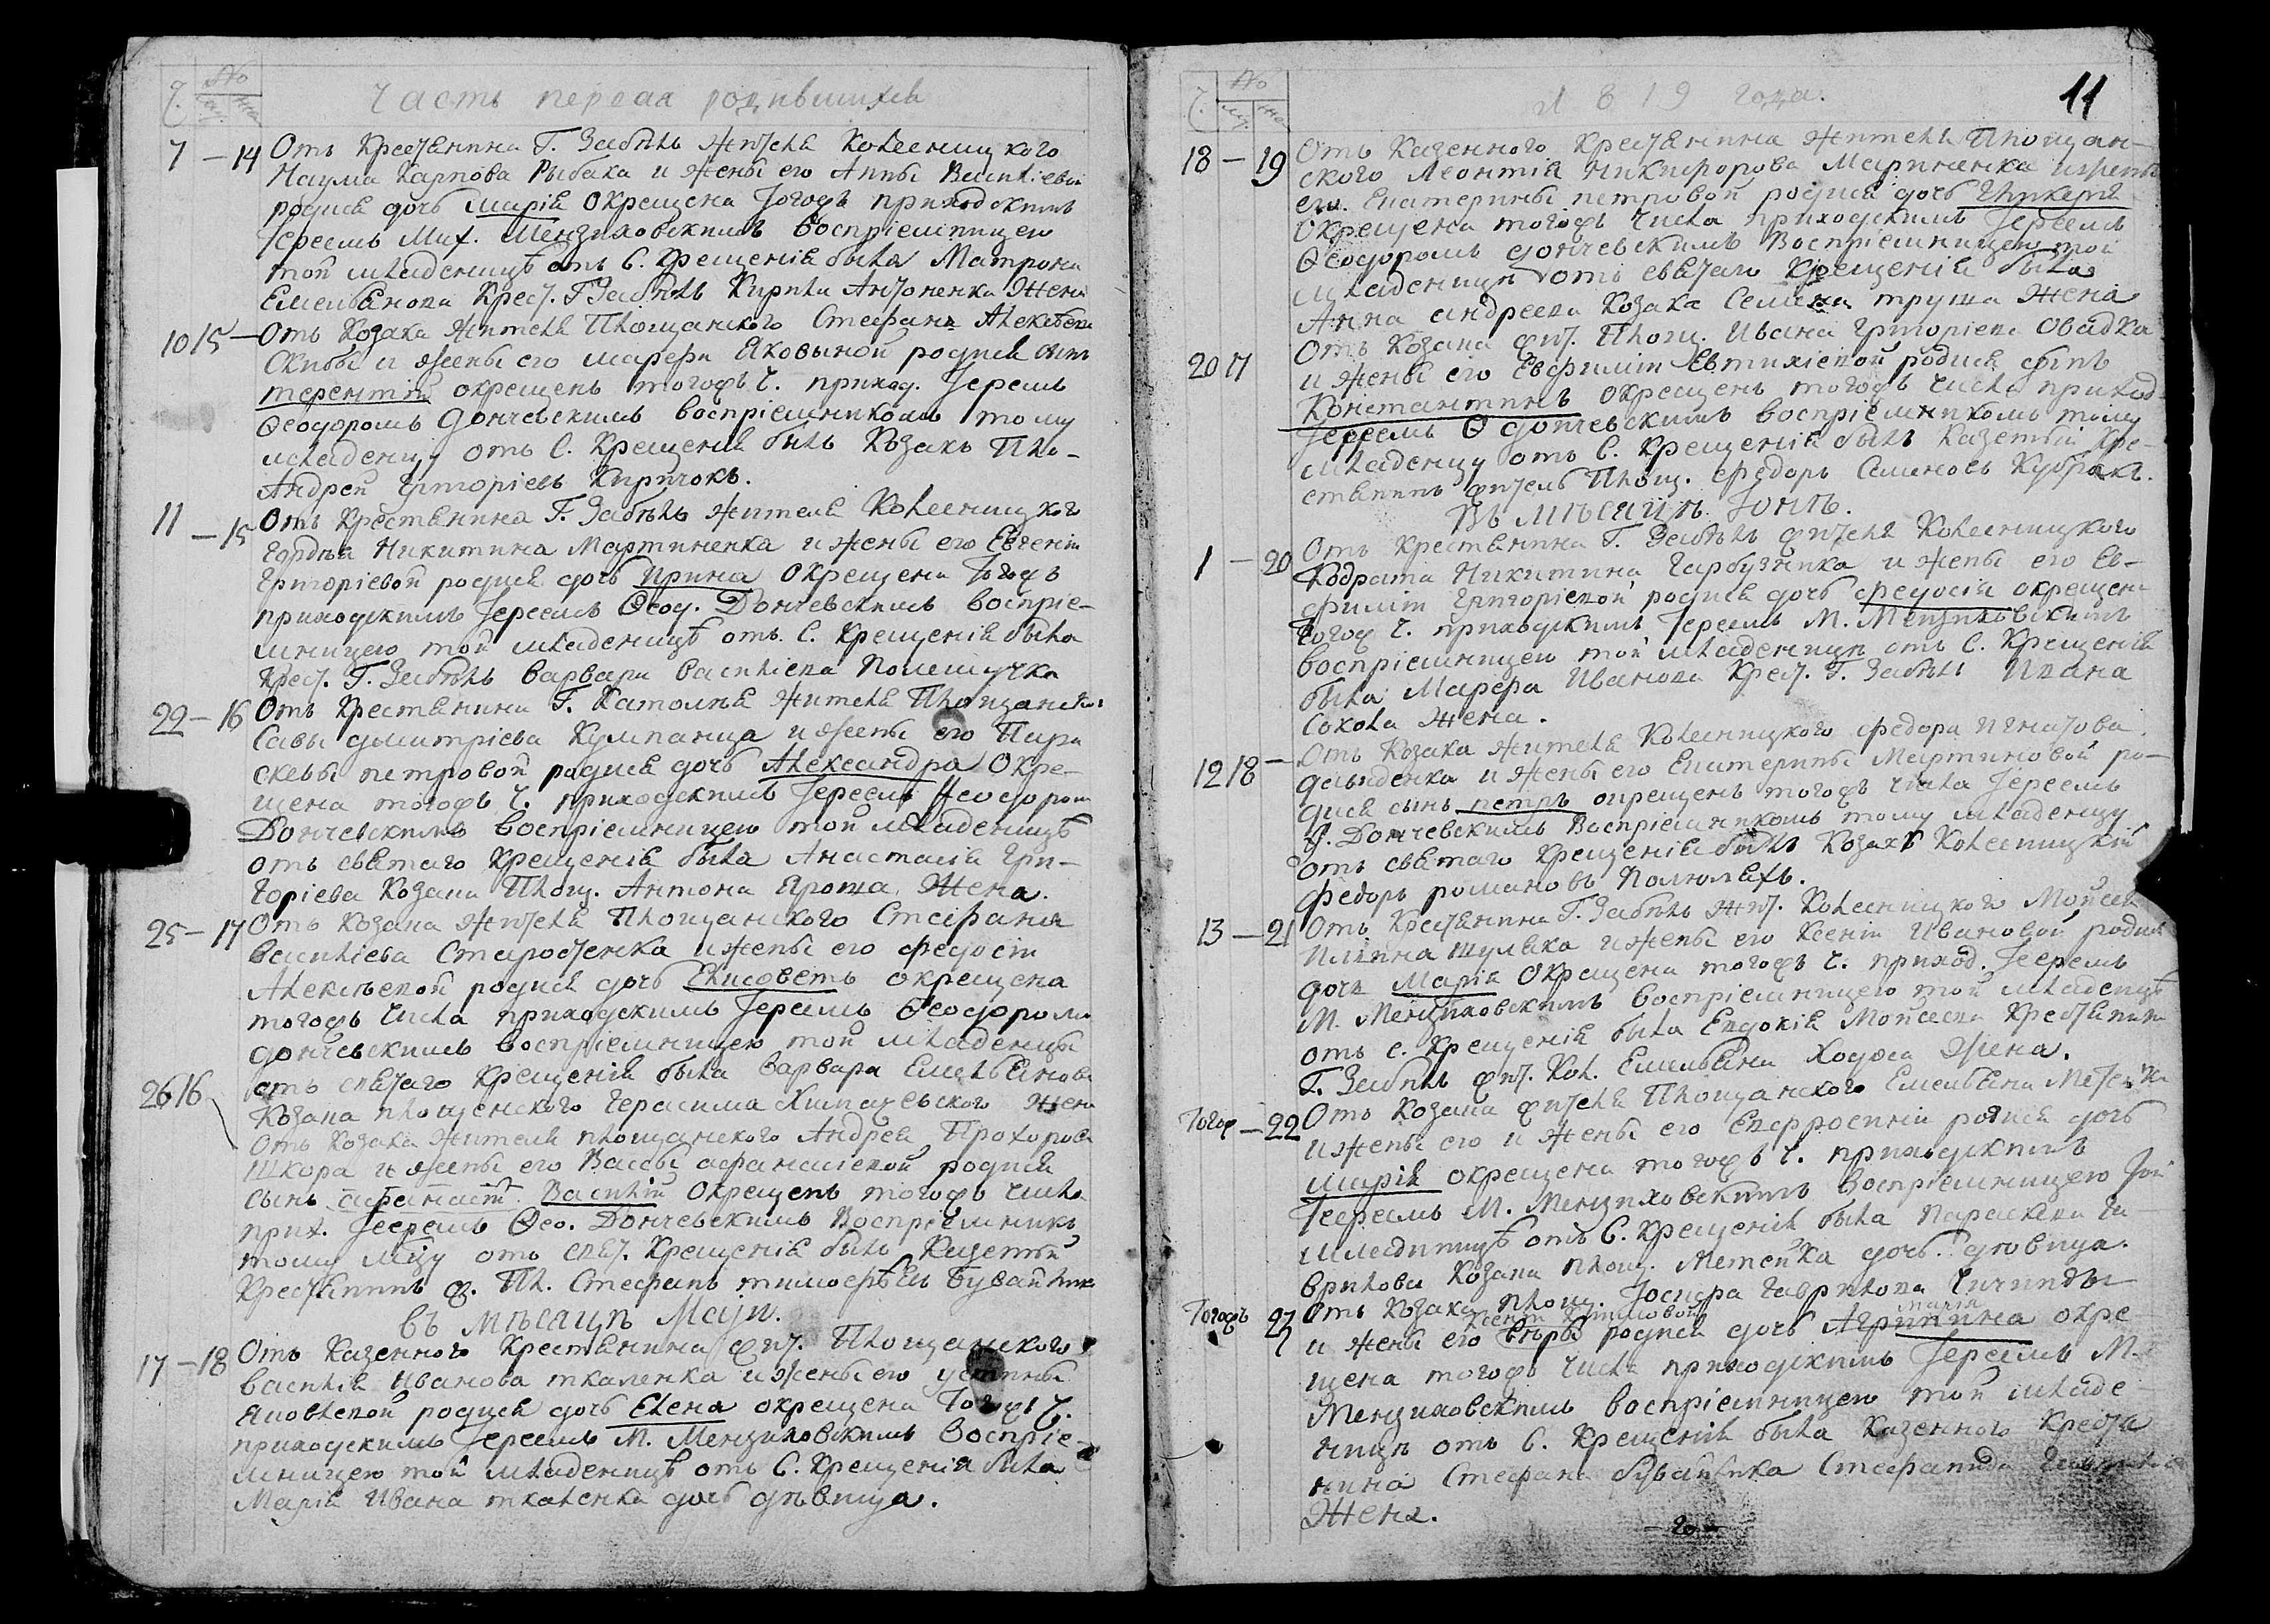 Ч. №
му. жен.
Часть первая родившихся
7 — 14 Отъ Крестьянина Г. Забѣлъ жителя Колесницкого
Наума Карпова Рыбака и жены его Анны Василіевой
родися дочь Марія окрещена тогожъ приходскимъ
Іереемъ Мих. Мензиховскимъ воспріемницею
той младеницѣ отъ С. Крещенія была Матрона
Емельянова Крест. Г. Забѣлъ Кирила Антоненка Жена
10 15 — Отъ Козака жителя Площанского Стефана
Скибы и жены его Марфы Яковыной родися сынъ
терентій окрещенъ тогожъ ч. приход. Іереемъ
Ѳеодоромъ Дончевскимъ воспріемникомъ тому
младенцу отъ С. Крещенія былъ Козакъ Пло-
Андрей Григоріевъ Киричокъ.
11 — 15 Отъ Крестьянина Г. Забѣлъ жителя Колесницкого
Гордѣя Никитина Мартиненка и жены его Евгеніи
Григоріевой родися дочь Ирина окрещена тогожъ
приходскимъ Іереемъ Ѳеод. Дончевскимъ воспріе-
мницею той младеницѣ отъ С. Крещенія была
Крест. Г. Забѣлъ Варвара Василіева Полещучка
22 — 16 Отъ Крестьянина Г. жителя Площанского
Савы Дмитріева Кумпанца и жены его Пара
скевы петровой родися дочь Александра Окре-
щена тогожъ ч. приходскимъ Іереемъ Ѳеодоромъ
Дончевскимъ воспріемницею той младеницѣ
отъ святаго Крещенія была Анастасія Гри-
горіева Козака Площ. Антона Яроша Жена.
25 — 17 Отъ Козака жителя Площанского Стефана
Василіева Старостенка и жены его Федосіи
Алексѣевой родися дочь Елисоветъ окрещена
тогожъ числа приходскимъ Іереемъ Ѳеодоромъ
Дончевскимъ воспріемницею той младеницы
отъ святаго Крещенія была Варвара Емельянова
Козака площенского Герасима жена
26 16 Отъ Козака жителя площанского Андрея Прохорова
Шкора и жены его Вассы афанасіевой родися
сынъ афанасій Василій Окрещенъ тогожъ числа
прих. Іереемъ Ѳео. Дончевскимъ Воспріемникъ
тому млцу отъ свят. Крещенія былъ Казенный
Крестьянинъ ж. Пл. Стефанъ тимофѣевъ
въ мѣсяцѣ Маіи.
17 — 18 Отъ Казенного Крестьянина жит. Площанского
Василія Иванова ткаленка и жены его устины
Яковлевой родися дочь Елена окрещена тогожъ ч.
приходскимъ Іереемъ М. Мензиховскимъ Воспріе-
мницею той младеницѣ отъ С. Крещенія была
Марія Ивана ткаленка дочь дѣвица.
Ч. №
му. жен.
1819 года.
11
18 — 19 Отъ Казенного Крестьянина жителя Площан-
ского Леонтія Никифорова Мариненка и жены
его Екатерины петровой родися дочь Гликерія
окрещена тогожъ числа приходскимъ Іереемъ
Ѳеодоромъ Дончевскимъ Воспріемницею той
младеницѣ отъ святаго Крещенія была
Анна андреева Козака Семена труша жена
20 17 Отъ Козака жит. Площ. Ивана Григоріева Овадка
и жены его Евфиміи Евтихіевой родися сынъ
Константинъ окрещенъ тогожъ числа приход
Іереемъ Ѳ Дончевскимъ воспріемникомъ тому
младенцу отъ С. Крещенія былъ Казенный Кре-
стянинъ житель Площ. Федоръ Семеновъ Кубракъ.
Въ мѣсяцѣ Іюнѣ.
1 — 20 Отъ Крестьянина Г. Забѣлъ жителя Колесницкого
Кодрата Никитина и жены его Ев-
фиміи Григоріевой родися дочь Федосія окрещена
тогож ч. приходскимъ Іереемъ М. Мензиховскимъ
воспріемницею той младеницѣ отъ С. Крещенія
была Марфа Иванова Крест. Г. Забѣлъ Ивана
Сокола жена.
12 18 — Отъ Козака жителя Колесницкого Федора Игнатова
Демиденка и жены его Екатерины Мартиновой ро-
дися сынъ петръ окрещенъ тогожъ числа Іереемъ
Дончевскимъ Воспріемникомъ тому младенцу
отъ святаго Крещенія былъ Козакъ Колесницкій
Федоръ романовъ
13 — 21 Отъ Крестьянина Г. Забѣлъ жит. Колесницкого Мойсея
Иліина Шуляка и жены его Ксеніи Ивановой родися
дочь Марія Окрещена тогожъ ч. приход. Іереемъ
М. Мензиховскимъ воспріемницею той младеницѣ
отъ с. Крещенія была Евдокія Мойсеева Крестьянина
Г. Забѣлъ жит. Кол. Емельяна жена.
Тогож — 22 Отъ Козака жителя Площанского Емельяна
и жены его и жены его Евфросиніи родися дочь
Марія окрещена тогожъ ч. приходскимъ
Іереемъ М. Мензиховскимъ Воспріемницею той
младеницѣ отъ С. Крещенія была Параскева Га-
врилова Козака площ. дочь дѣвица.
Тогожъ 23 Отъ Козака площ. Гаврилова
и жены его родися дочь Агрипина окре
щена тогожъ числа приходскимъ Іереемъ М.
Мензиховскимъ воспріемницею той младе-
ницѣ отъ С. Крещенія была Казенного Крестя
нина Стефана Стефанида
Жена.